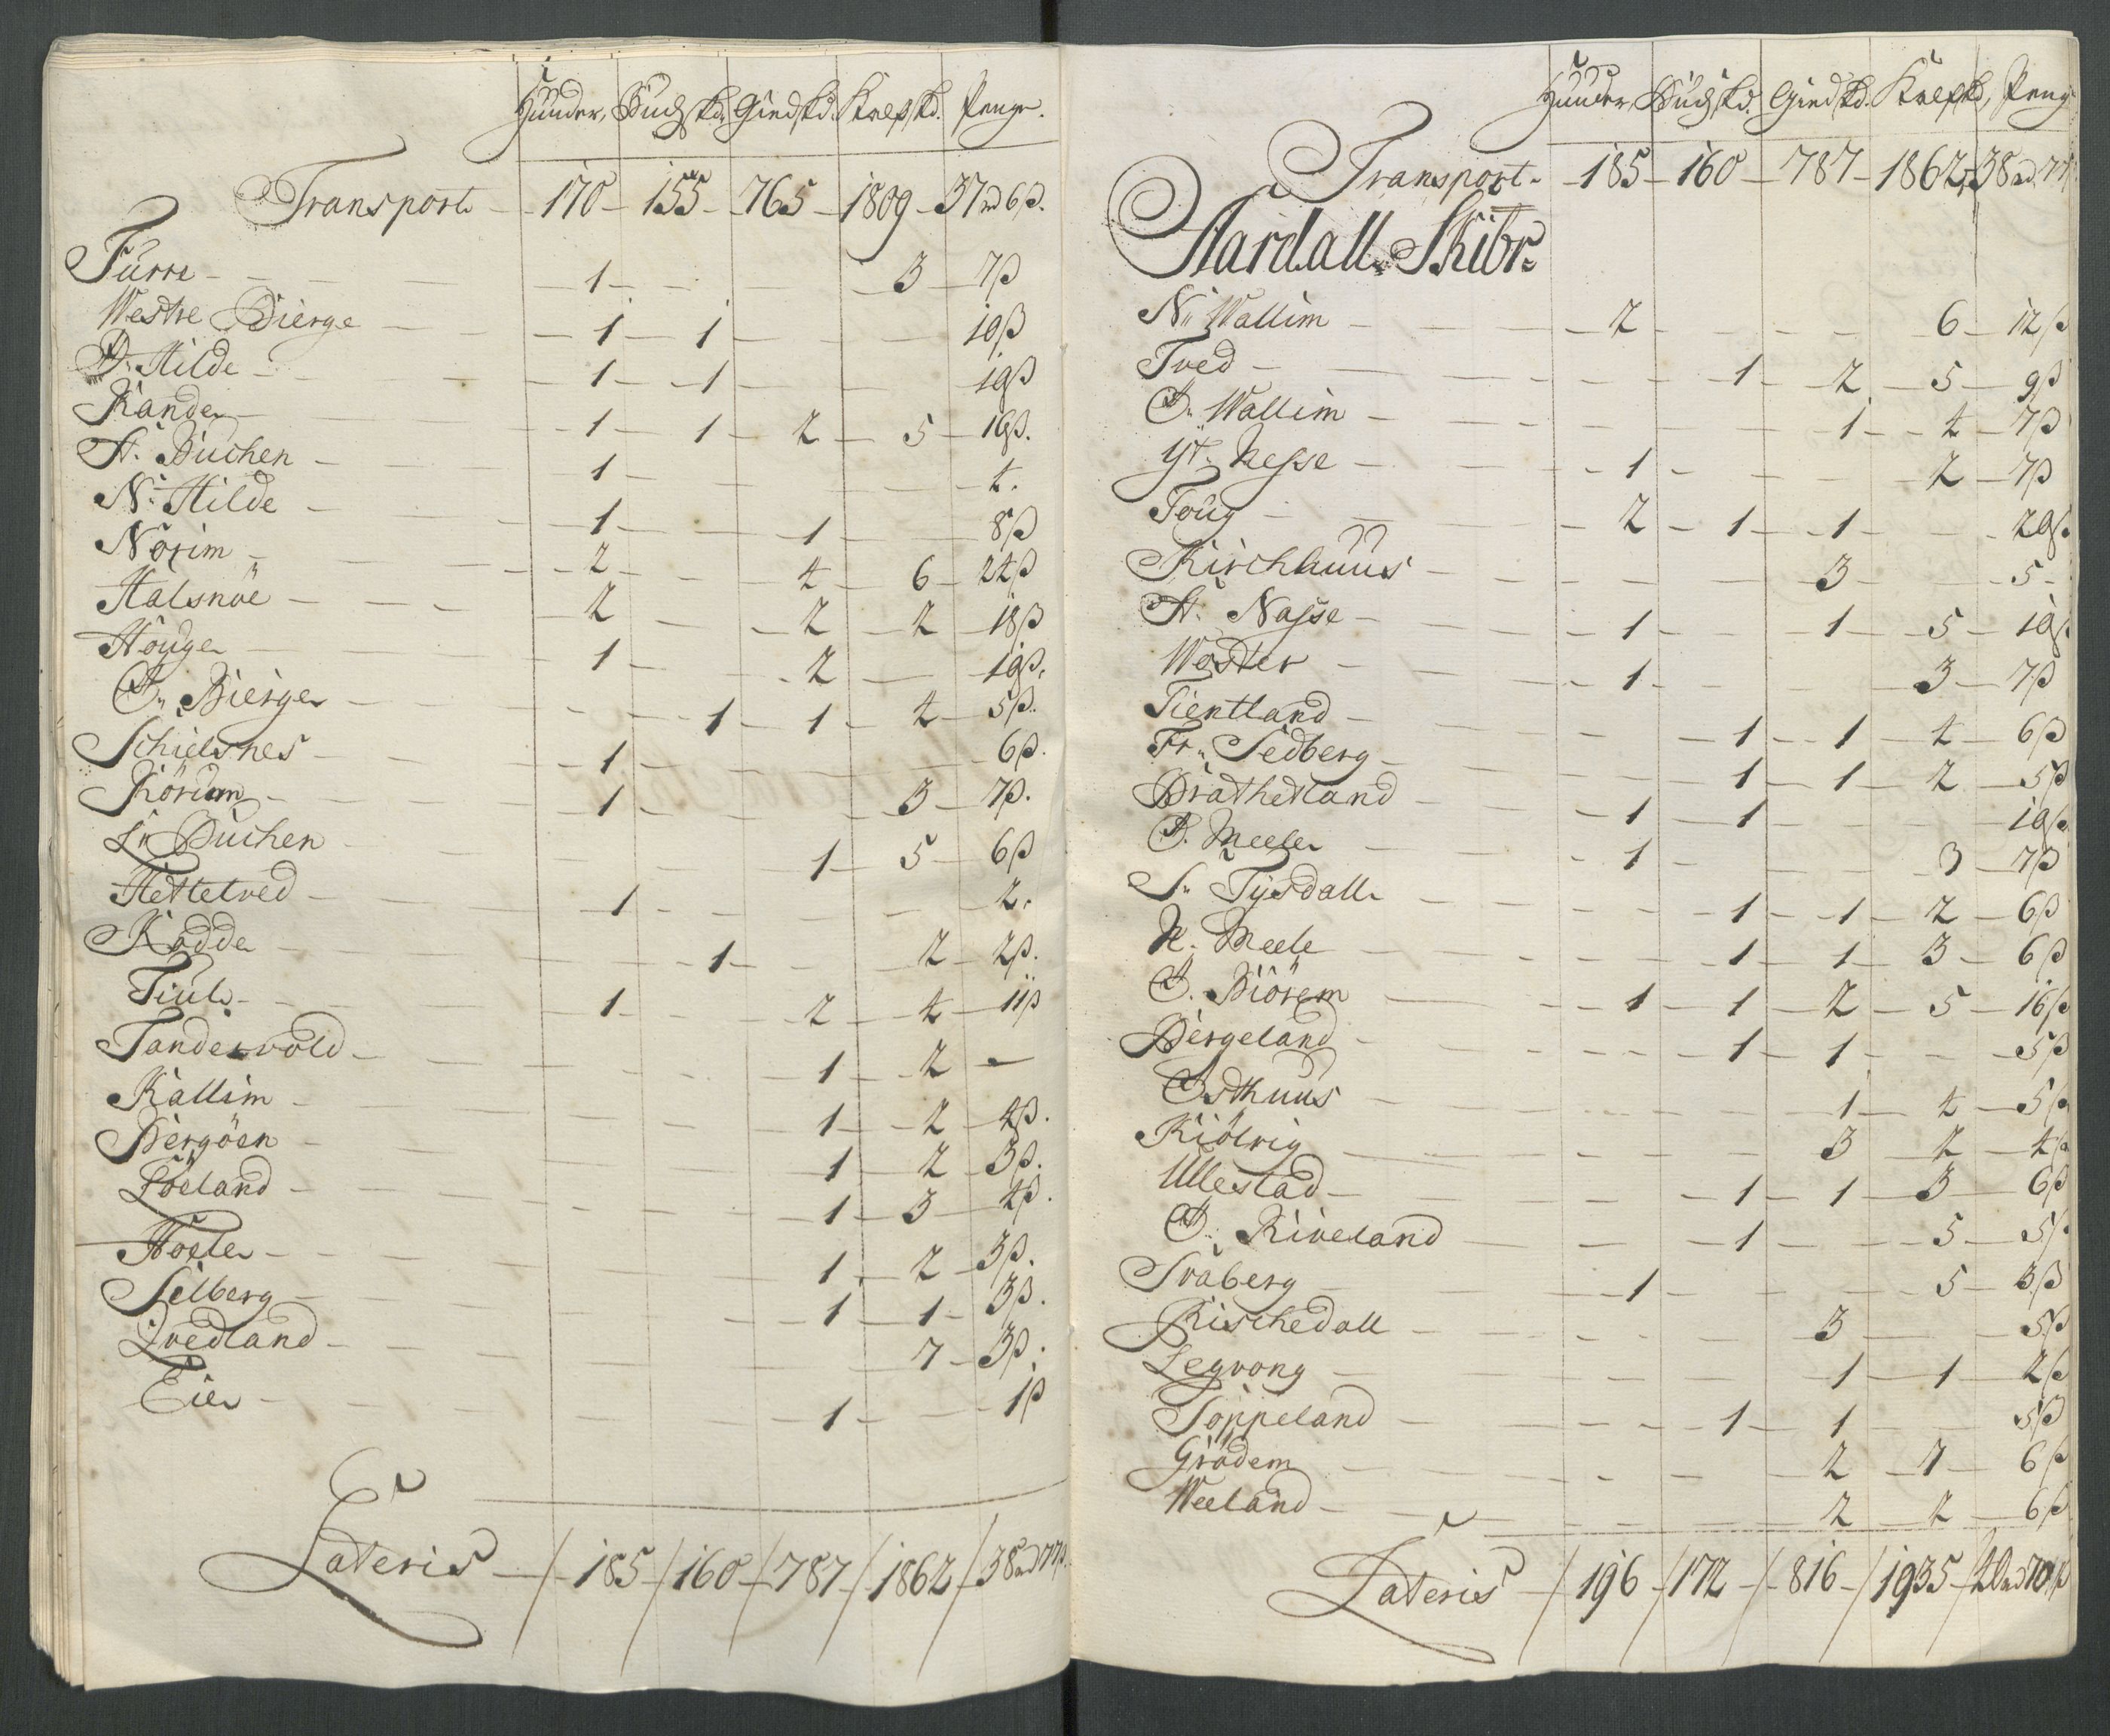 Huuder, Buch skd. Giedskd. Kalfskd. Penge.
Transport 170 155 765 1809 37 rd 6 ß.
Furre 1 3 7 ß
Westre Bierge 1 1 10 ß
Ø. Hilde 1 1 10 ß
Rande 1 1 2 5 16 ß.
St. Buchen 1 4.
N. Hilde 1 1 8 ß
Nörim 2 4 6 24 ß
Halsnöe 2 2 2 18 ß
Houge 1 2 10 ß.
Ö. Bierge 1 1 4 5 ß.
Schielsnes 1 6 ß.
Rörum 1 3 7 ß.
L. Buchen 1 5 6 ß
Hettetved 1 2.
Kodde 1 2 2 ß.
Fiul 1 2 4 11 ß
Tandervold 1 2 —
Kallim 1 2 4 ß.
Bergöen 1 2 3 ß.
Löeland 1 3 4 ß.
Hoele 1 2 3 ß.
Selberg 1 1 3 ß.
Qvedland 7 3 ß.
Eie 1 1 ß
Lateris 185 160 787 1862 38 rd 77 ß.
Huuder Buch skd. Giedskd. Kalfskd, Peng
Transport 185 160 787 1862 38 rd 77
Aardall Skibr.
N. Wallim 2 6 12 ß
Tved 1 2 5 9 ß
Ö. Wallim 1 4 7 ß
Yt. Nesse 1 2 7 ß
Toug 2 1 1 20 ß.
Kirchhuus 3 5
St. Nasse 1 1 5 10 ß
Woster 1 3 7 ß
Tientland 1 1 4 6 ß
Fr. Sedberg 1 1 2 5 ß
Brathetland 1 1 10 ß
Ö. Meele 1 3 7 ß
S. Tysdall 1 1 2 6 ß
N. Meele 1 1 3 6 ß
Ö. Biörem 1 1 2 5 16 ß
Bergeland 1 1 5 ß
Østhuus 1 4 5 ß
Kiölvig 3 2 4 ß
Ullestad 1 1 3 6 ß
Ö. Riveland 1 5 5 ß
Svaberg 1 5 3 ß
Rischedall 3 5 ß
Legvong 1 1 2 ß
Toppeland 1 1 5 ß
Grödem 2 7 6 ß
Weeland 2 2 6 ß
Lateris 196 172 816 1935 40 rd 70 ß